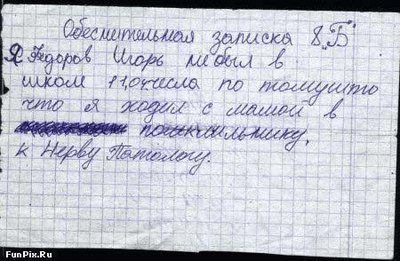 Обеснительная записка 8 „Б"
Я Федоров Игорь не был в
школе 11,04 числа по томушто
что я ходил с мамой в
к Нерву Патологу.
FunPix.Ru